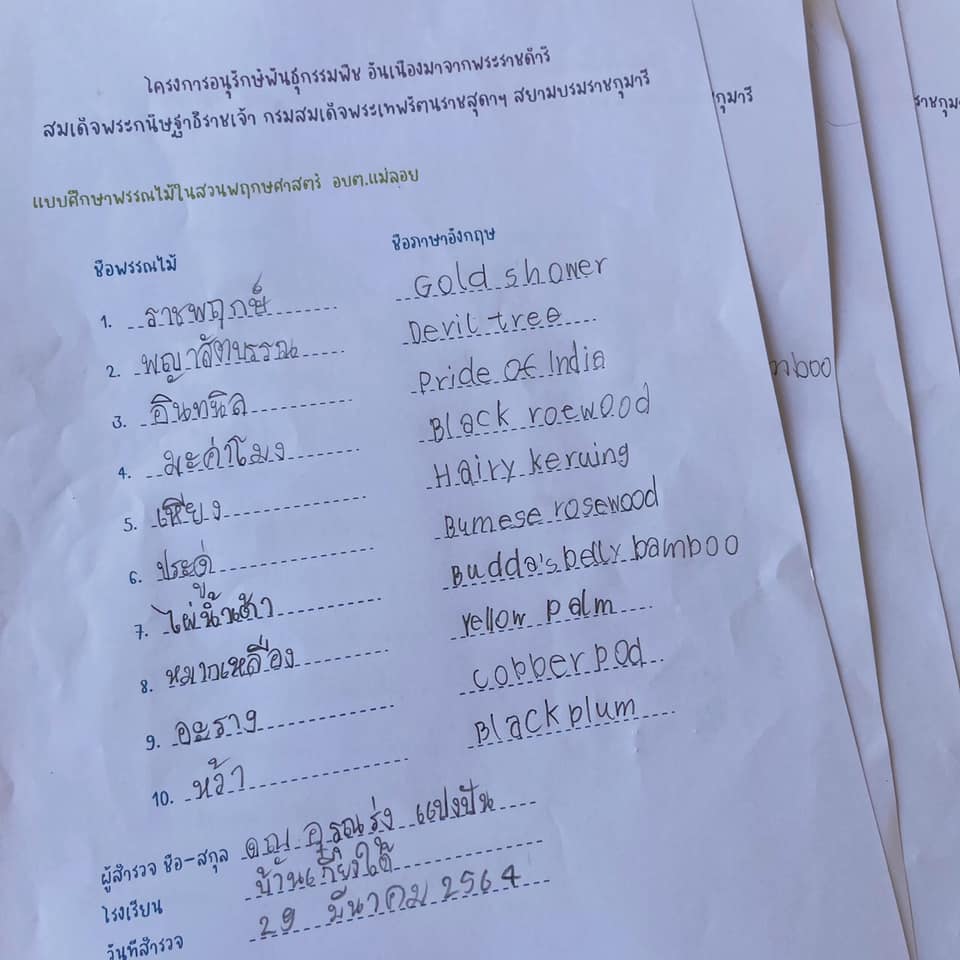 โครงการอนุรักษ์พันธุกรรมพืช อันเนื่องมาจากพระราชดำริ
สมเด็จพระกนิษฐาธิราชเจ้า กรมสมเด็จพระเทพรัตนราชสุดาฯ สยามบรมราชกุมารี
แบบศึกษาพรรณไม้ในสวนพฤกษศาสตร์ อบต.แม่ลอย
ชื่อพรรณไม้ ชื่อภาษาอังกฤษ
1. ราชพฤกษ์ Gold shower
2. พญาสัตบรรณ Devil tree
3. อินทนิล Pride of India
4. มะค่าโมง Black roewood
5. เหียง Hairy keruing
6. ประดู่ Bumese rosewood
7. ไผ่น้ำเต้า Budda's belly bamboo
8. หมากเหลือง Yellow palm
9. อะราง Copper pod
10. หว้า Black plum
ผู้สำรวจ ชื่อ-สกุล ด.ญ. แปงปัน
โรงเรียน บ้านเกี๋ยงใต้
วันที่สำรวจ 29 มีนาคม 2564
กุมารี
ราชกุม
boo